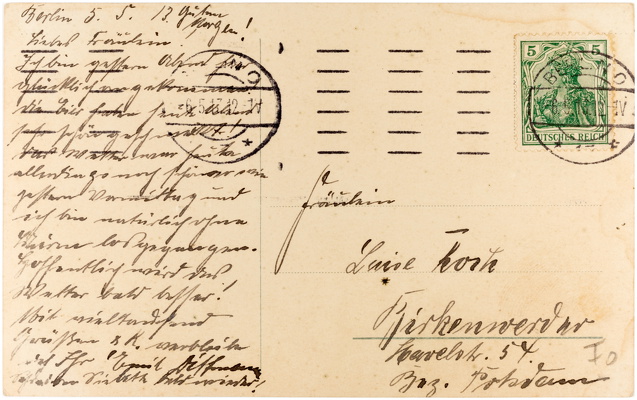 Berlin 5. 5. 13. Guten
Morgen!
Liebes Fräulein!
Ich bin gestern Abend
glücklich angekommen.
heute
Das Wetter war heute
allerdings noch wie
gestern Vormittag und
ich bin natürlich ohne
losgegangen.
Hoffentlich wird das
Wetter bald besser!
Mit vieltausend
Grüßen & K. verbleibe
ich Ihr Emil
bald wieder!
5 5
DEUTSCHES REICH
Fräulein
Luise Koch
Birkenwerder
Havelstr. 54.
Bez. Potsdam